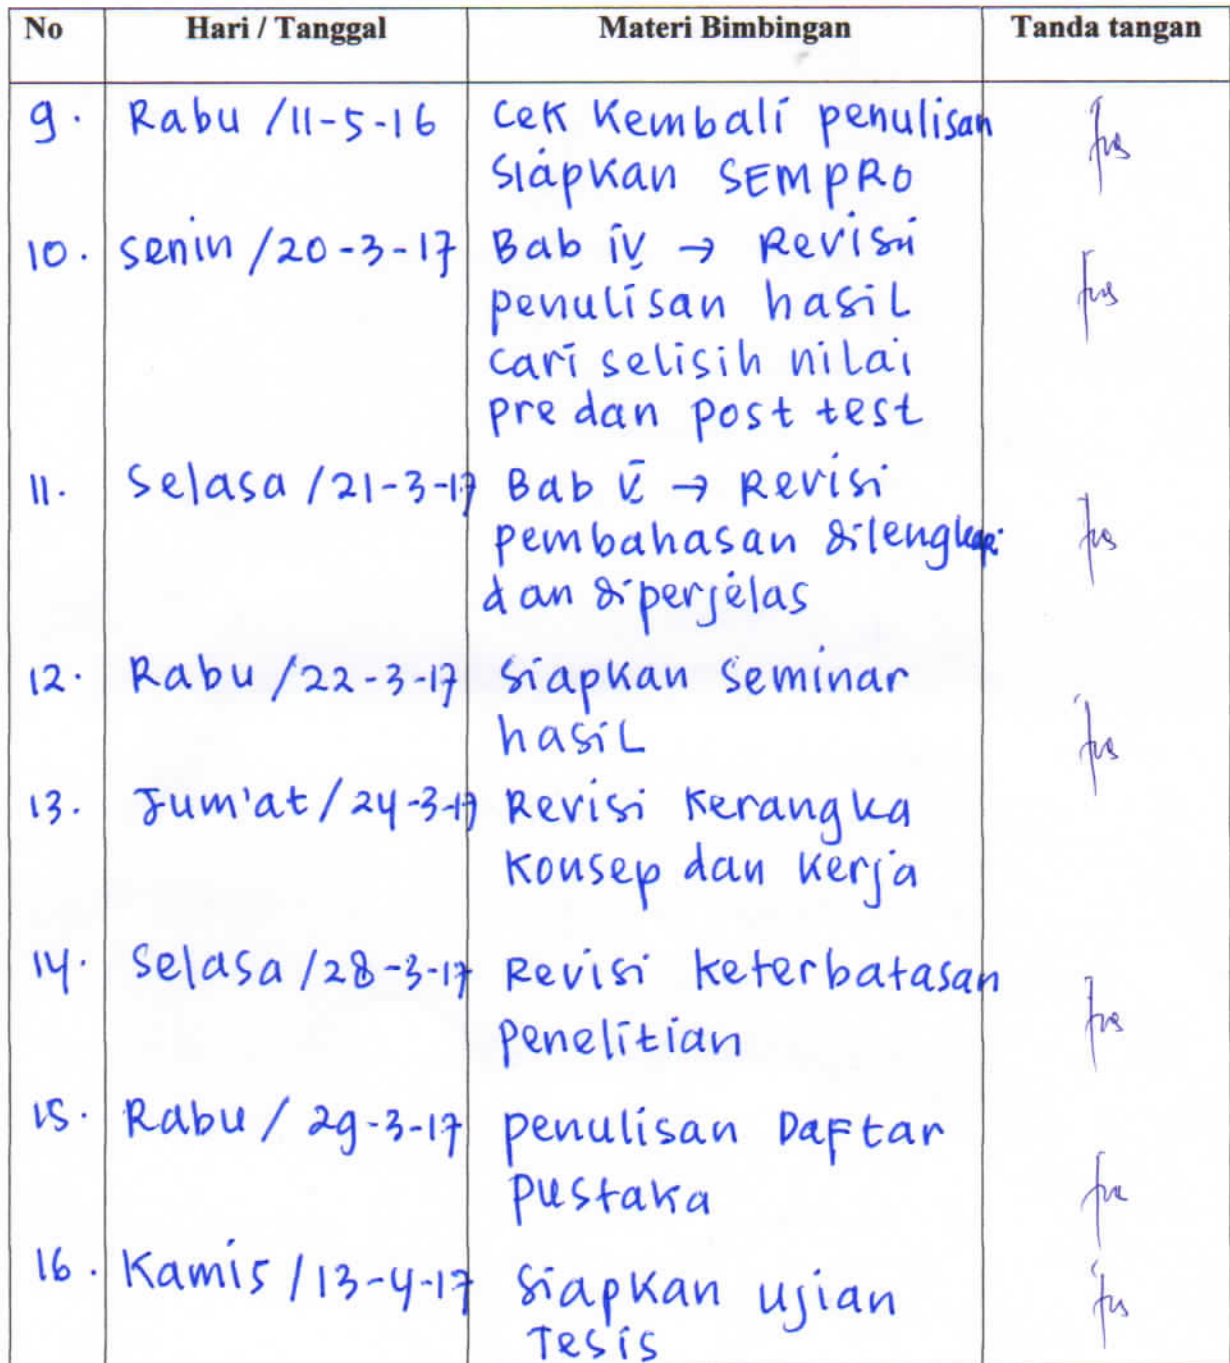 No Hari / Tanggal Materi Bimbingan Tanda tangan
9. Rabu /11-5-16 Cek Kembali penulisan
siapkan SEMPRO
10. senin /20-3-17 Bab IV → Revisi
penulisan hasil
cari selisih nilai
pre dan post test
11. Selasa /21-3-17 Bab V → Revisi
pembahasan dilengkapi
dan diperjelas
12. Rabu /22-3-17 siapkan seminar
hasil
13. Jum'at /24-3-17 Revisi Kerangka
Konsep dan Kerja
14. Selasa /28-3-17 Revisi keterbatasan
penelitian
15. Rabu / 29-3-17 penulisan Daftar
pustaka
16. Kamis /13-4-17 siapkan ujian
Tesis